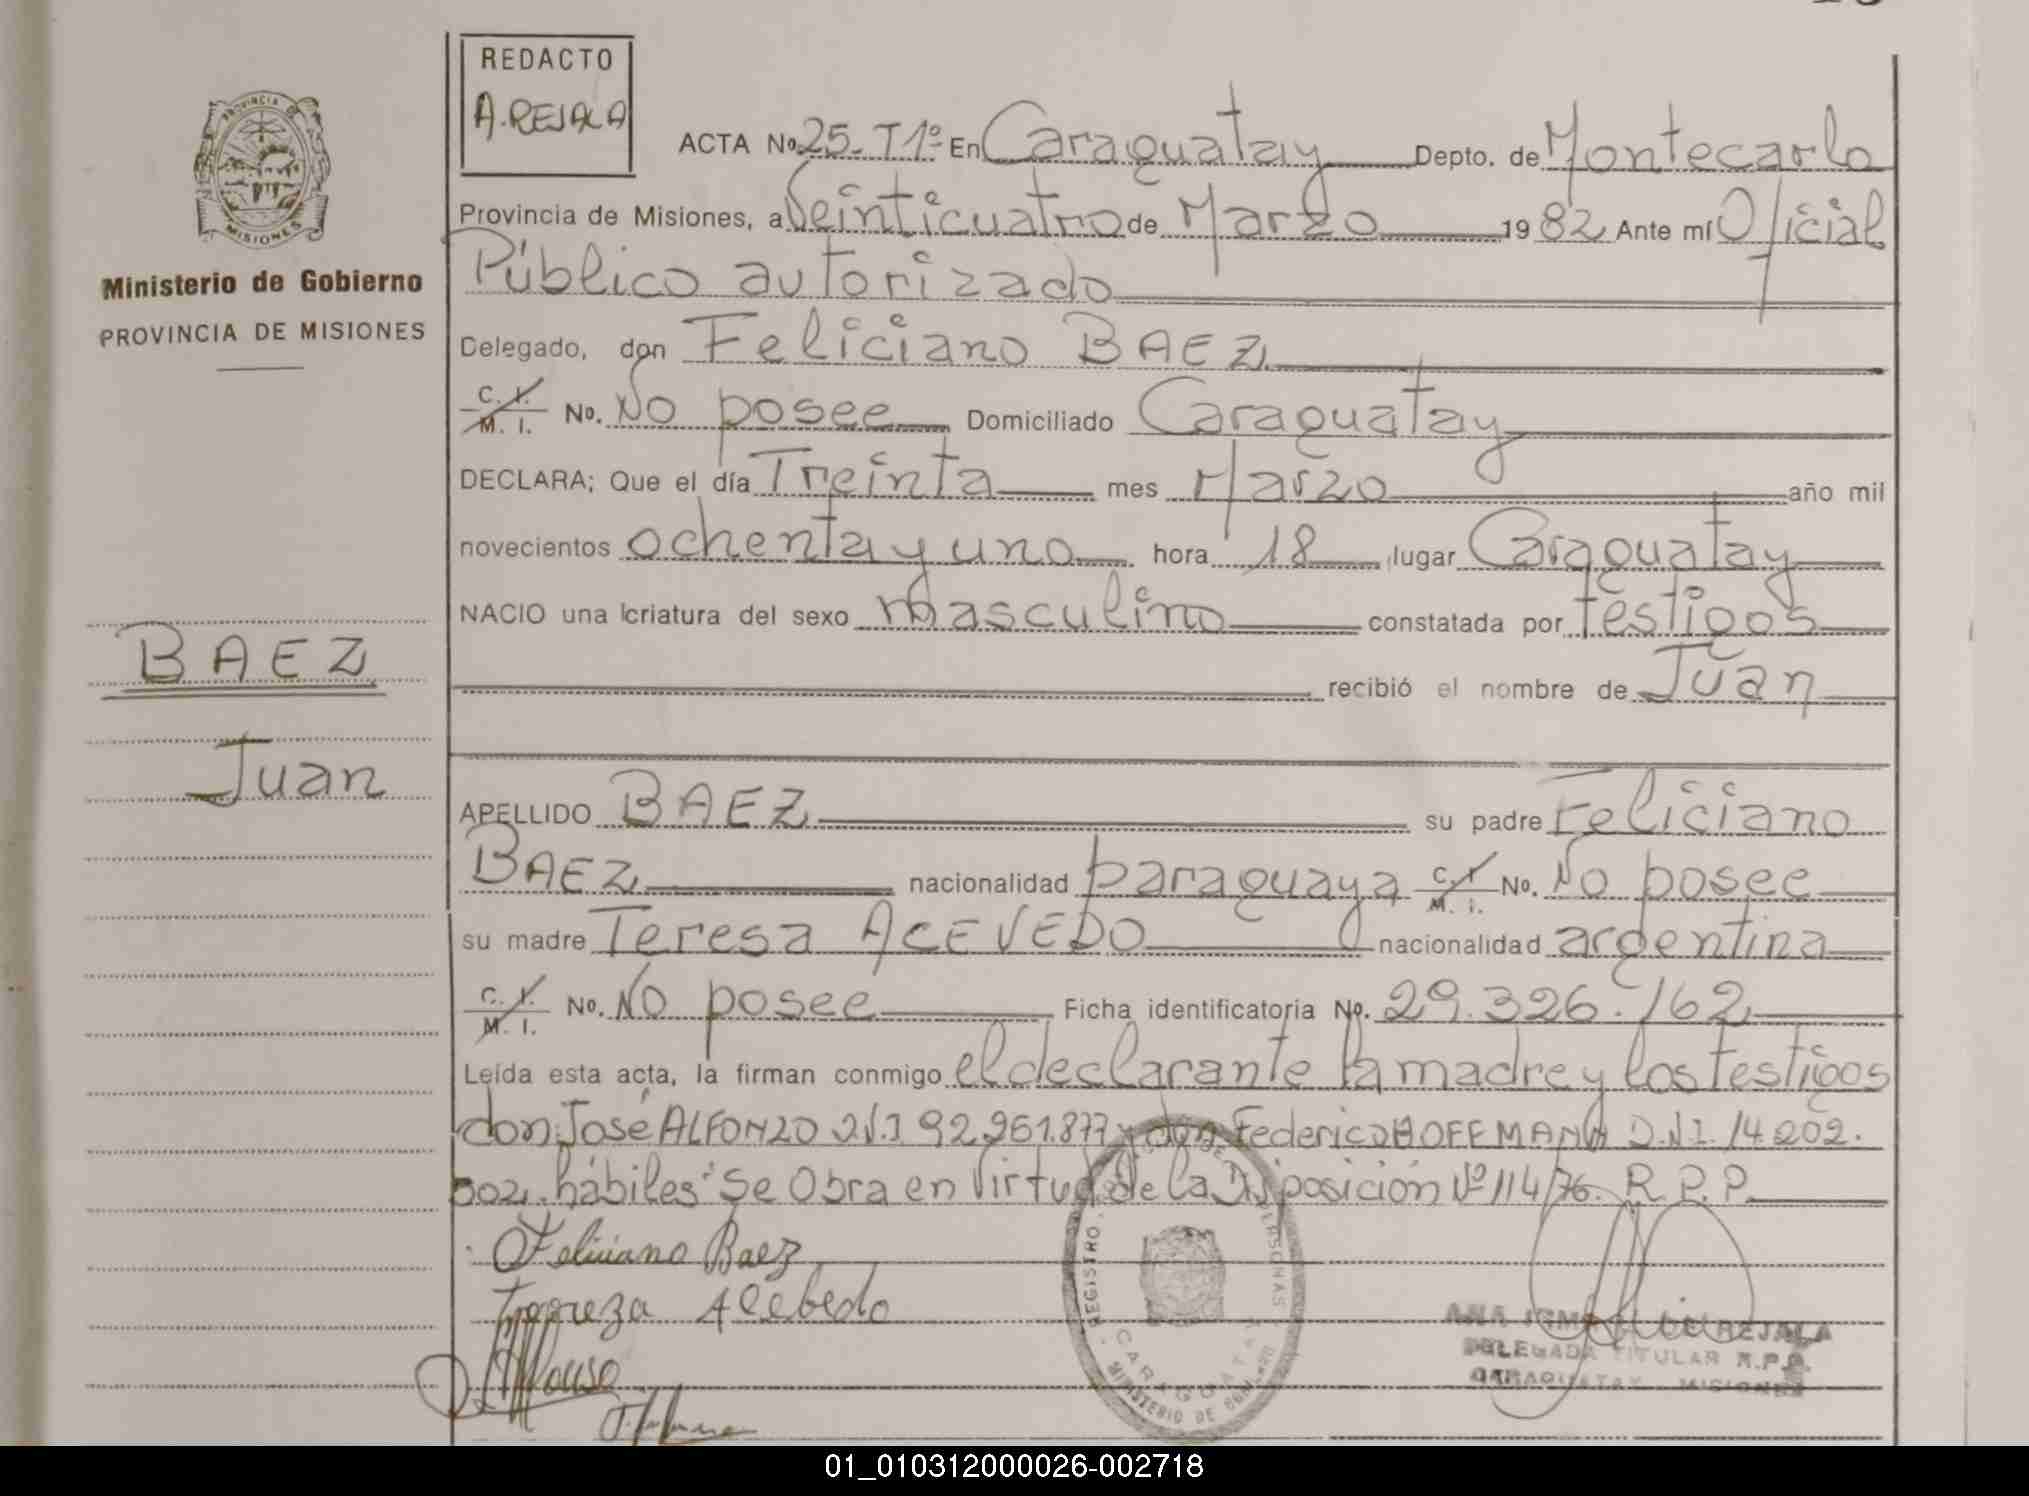 REDACTO
A. REJALA
PROVINCIA DE
MISIONES
Ministerio de Gobierno
PROVINCIA DE MISIONES
ACTA No. 25. T1º En Caraguatay Depto. de Montecarlo
Provincia de Misiones, a Veinticuatro de Marzo 1982 Ante mí Oficial
Público autorizado
Delegado, don Feliciano BAEZ
C. I. M. I. No. No posee Domiciliado Caraguatay
DECLARA; Que el día Treinta mes Marzo año mil
novecientos ochenta y uno hora 18 lugar Caraguatay
NACIO una criatura del sexo masculino constatada por testigos
recibió el nombre de Juan
BAEZ
Juan
APELLIDO BAEZ su padre Feliciano
BAEZ nacionalidad paraguaya C. I. M. I. No. No posee
su madre Teresa ACEVEDO nacionalidad argentina
C. I. M. I. No. No posee Ficha identificatoria No. 29.326.162
Leída esta acta, la firman conmigo el declarante la madre y los testigos
don José ALFONZO D.N.I 92.951.877 y don Federico HOFFMANN D.N.I. 14.202.
502. hábiles Se Obra en Virtud de la Disposición Nº 114/76. R.P.P.
Feliciano Baez
Tereza Acebedo
REGISTRO DE PERSONAS
CARAGUATAY
MINISTERIO DE
ANA DE REJALA
DELEGADA TITULAR R.P.P.
CARAGUATAY MISIONES
01_010312000026-002718